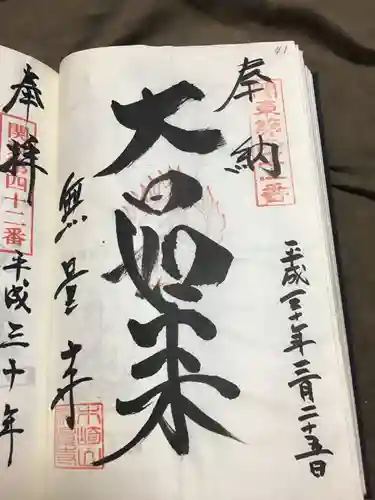 41
奉納
大日如来
平成三十年三月二十五日
無量寺
奉拝
四十二番
平成三十年